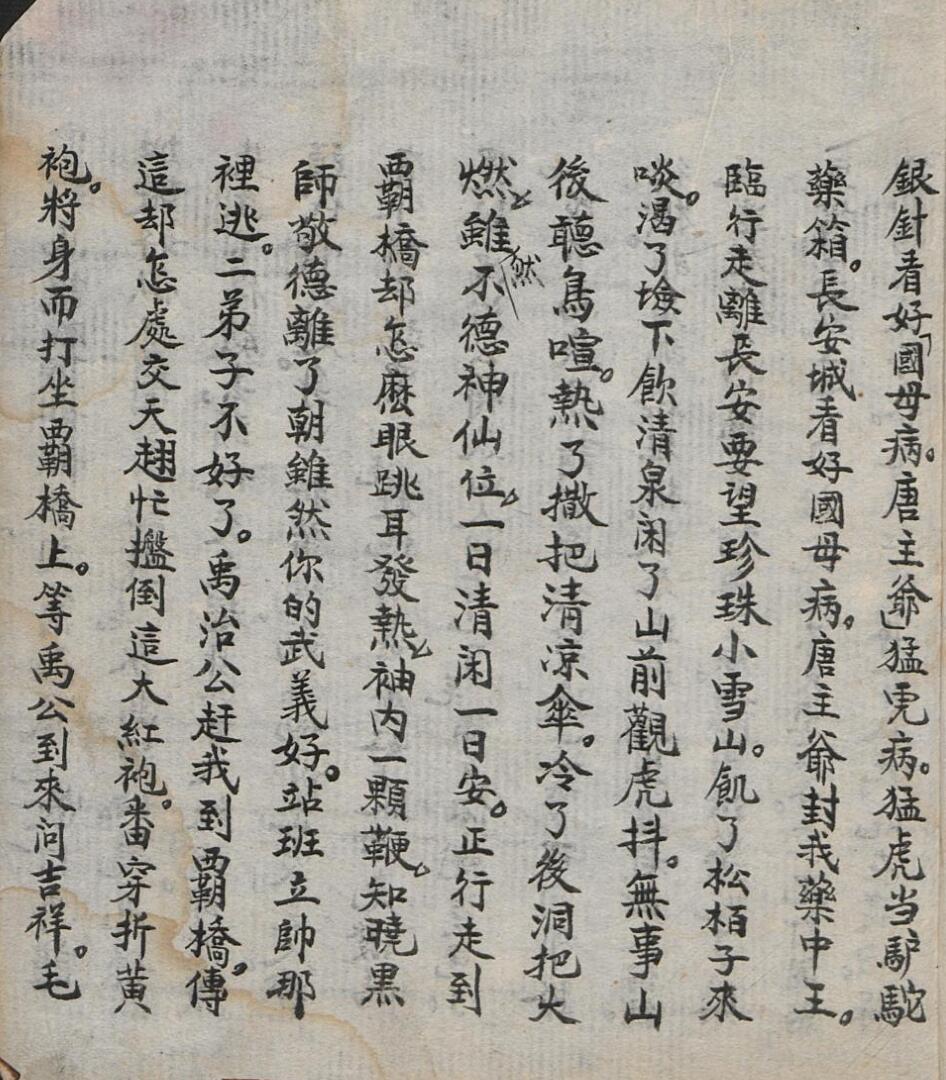 銀針看好國母病。唐主爺猛虎病。猛虎当馿駝
藥箱。長安城看好國母病。唐主爺封我藥中王。
臨行走離長安要望珍珠小雪山。飢了松栢子來
啖。渴了墕下飲清泉闲了山前觀虎抖。無事山
後聽鳥喧。熱了撒把清凉傘。冷了後洞把火
燃。雖然不德神仙位。一日清闲一日安。正行走到
覇橋却怎麽眼跳耳發熱。袖內一顆鞭。知曉黑
師敬德離了朝雖然你的武義好。站班立帥那
裡逃。二弟子不好了。禹治公赶我到覇橋。傳
這却怎處交天翅忙攨倒這大紅袍。番穿折黄
袍。將身而打坐覇橋上。等禹公到來问吉祥。毛